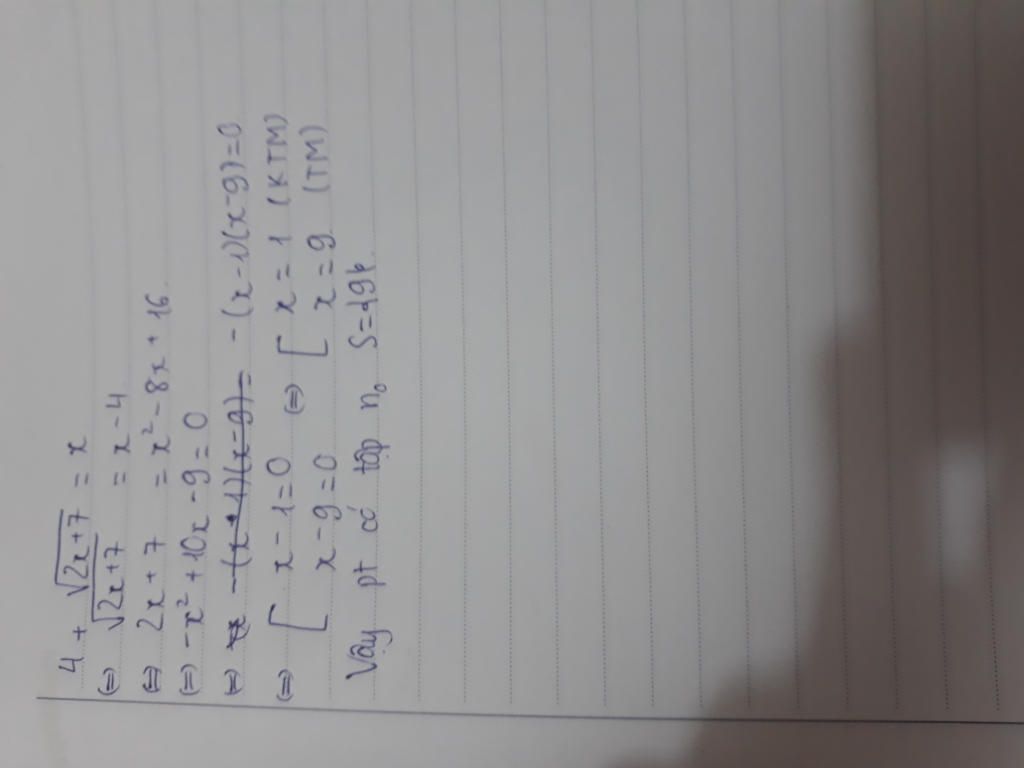 4 + √2x+7 = x
⇔ √2x+7 = x-4
⇔ 2x+7 = x² - 8x + 16
⇔ -x² + 10x - 9 = 0
⇔ -(x-1)(x-9) = -(x-1)(x-9)=0
⇔ [ x-1=0 ⇔ [ x = 1 (KTM)
x-9=0 x=9 (TM)
Vậy pt có tập n₀ S={9}